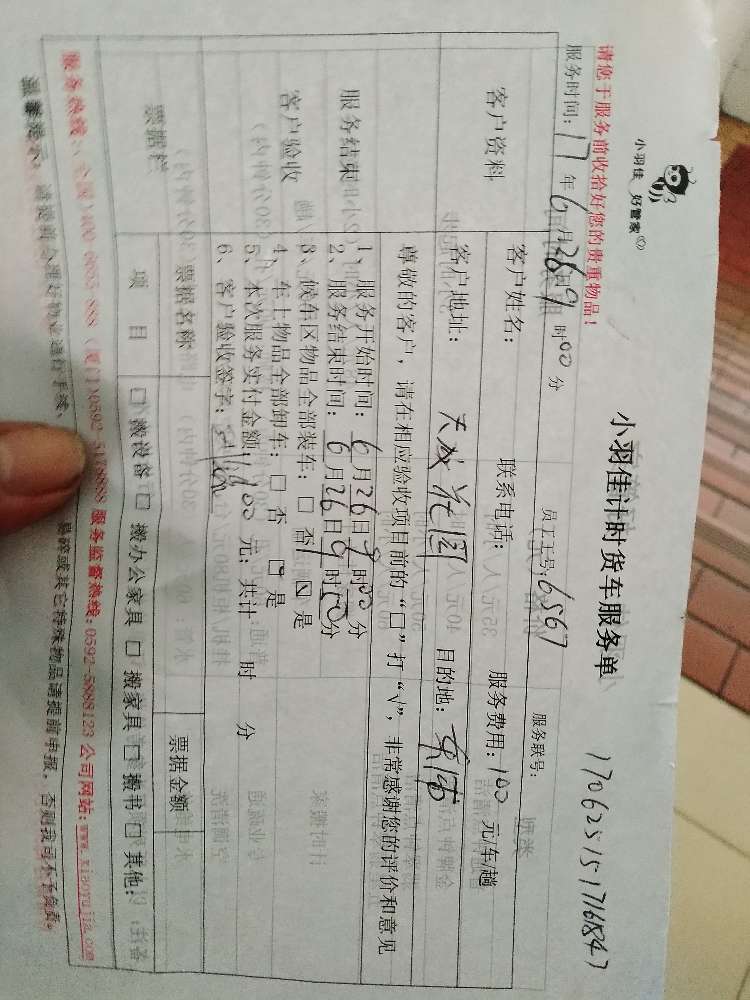 小羽佳 好管家
小羽佳计时货车服务单
1706251517161847
请您于服务前收拾好您的贵重物品!
服务时间:17年6月26日9时00分
员工工号:6567
服务联号:
客户资料
客户姓名:
联系电话:
服务费用:100元/车/趟
客户地址:
目的地:
尊敬的客户,请在相应验收项目前的“口”打“√”,非常感谢您的评价和意见
服务结束
客户验收
1、服务开始时间:6月26日9时00分
2、服务结束时间:6月26日9时50分
3、候车区物品全部装车:□ 否 ☑ 是
4、车上物品全部卸车:□ 否 □ 是
5、本次服务实付金额:100元;共计 时 分
6、客户验收签字:
票据栏
票据名称
票据金额
项 目
□ 搬设备 □ 搬办公家具 □ 搬家具 □ 搬书 □ 其他:
服务热线:全国:400 6055 888 (厦门)0592-5178888 服务监督热线:0592-5888123 公司网站:www.xiaoyujia.com
温馨提示:请提前办理好物业通行手续,易碎或其它特殊物品请提前申报,否则我司不予负责。